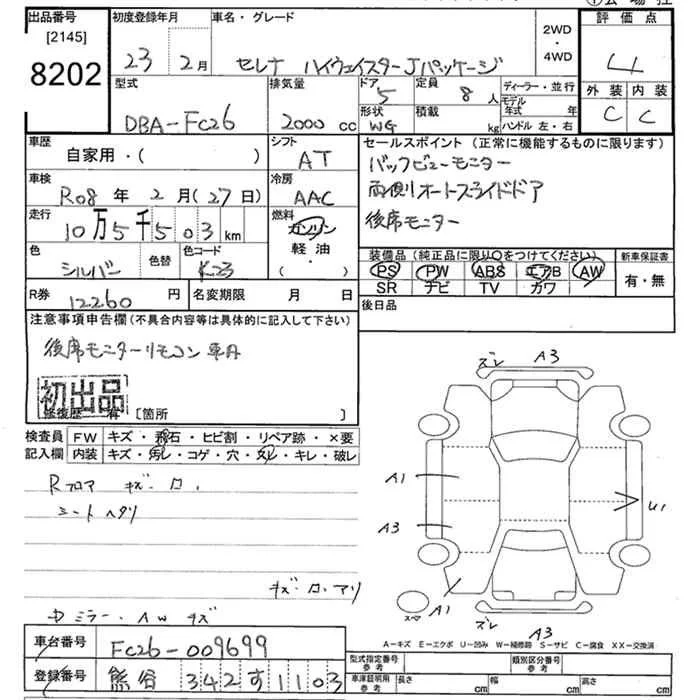 出品番号
[2145]
8202
初度登録年月
23 2月
車名・グレード
セレナ ハイウェイスターJパッケージ
2WD
・
4WD
評価点
4
外装 内装
C C
型式
DBA-FC26
排気量
2000 cc
ドア
5
形状
WG
定員
8人
積載
kg
ディーラー・並行
モデル年式 年
ハンドル 左・右
車歴
自家用・( )
シフト
AT
車検
R08年 2月(27日)
冷房
AAC
走行
10万5千503km
燃料
ガソリン
軽油
・( )
色
シルバー
色替
色コード
K23
R券
12260円
名変期限 月 日
セールスポイント(正常に機能するものに限ります)
バックビューモニター
両側オートスライドドア
後席モニター
装備品(純正品に限り○をつけてください)
PS PW ABS エアB AW
SR ナビ TV カワ
新車保証書
有・無
後日品
注意事項申告欄(不具合内容等は具体的に記入して下さい)
後席モニターリモコン 車内
初出品
修復歴 有 [箇所 ]
検査員記入欄
FW キズ・飛石・ヒビ割・リペア跡・×要
内装 キズ・汚レ・コゲ・穴・スレ・キレ・破レ
Rフロア キズ・ロ.
シートヘタリ
キズ・ロ.アリ
ミラー・AWキズ
ズレ A3
A1
A3
U1
A1
スペアー
ズレ
A3
A-キズ E-エクボ U-凹み W-補修跡 S-サビ C-腐食 XX-交換済
車台番号
FC26-009699
登録番号
熊谷 342す1103
型式指定番号
参考
類別区分番号
参考
車庫証明用
参考
長さ cm
幅 cm
高さ cm